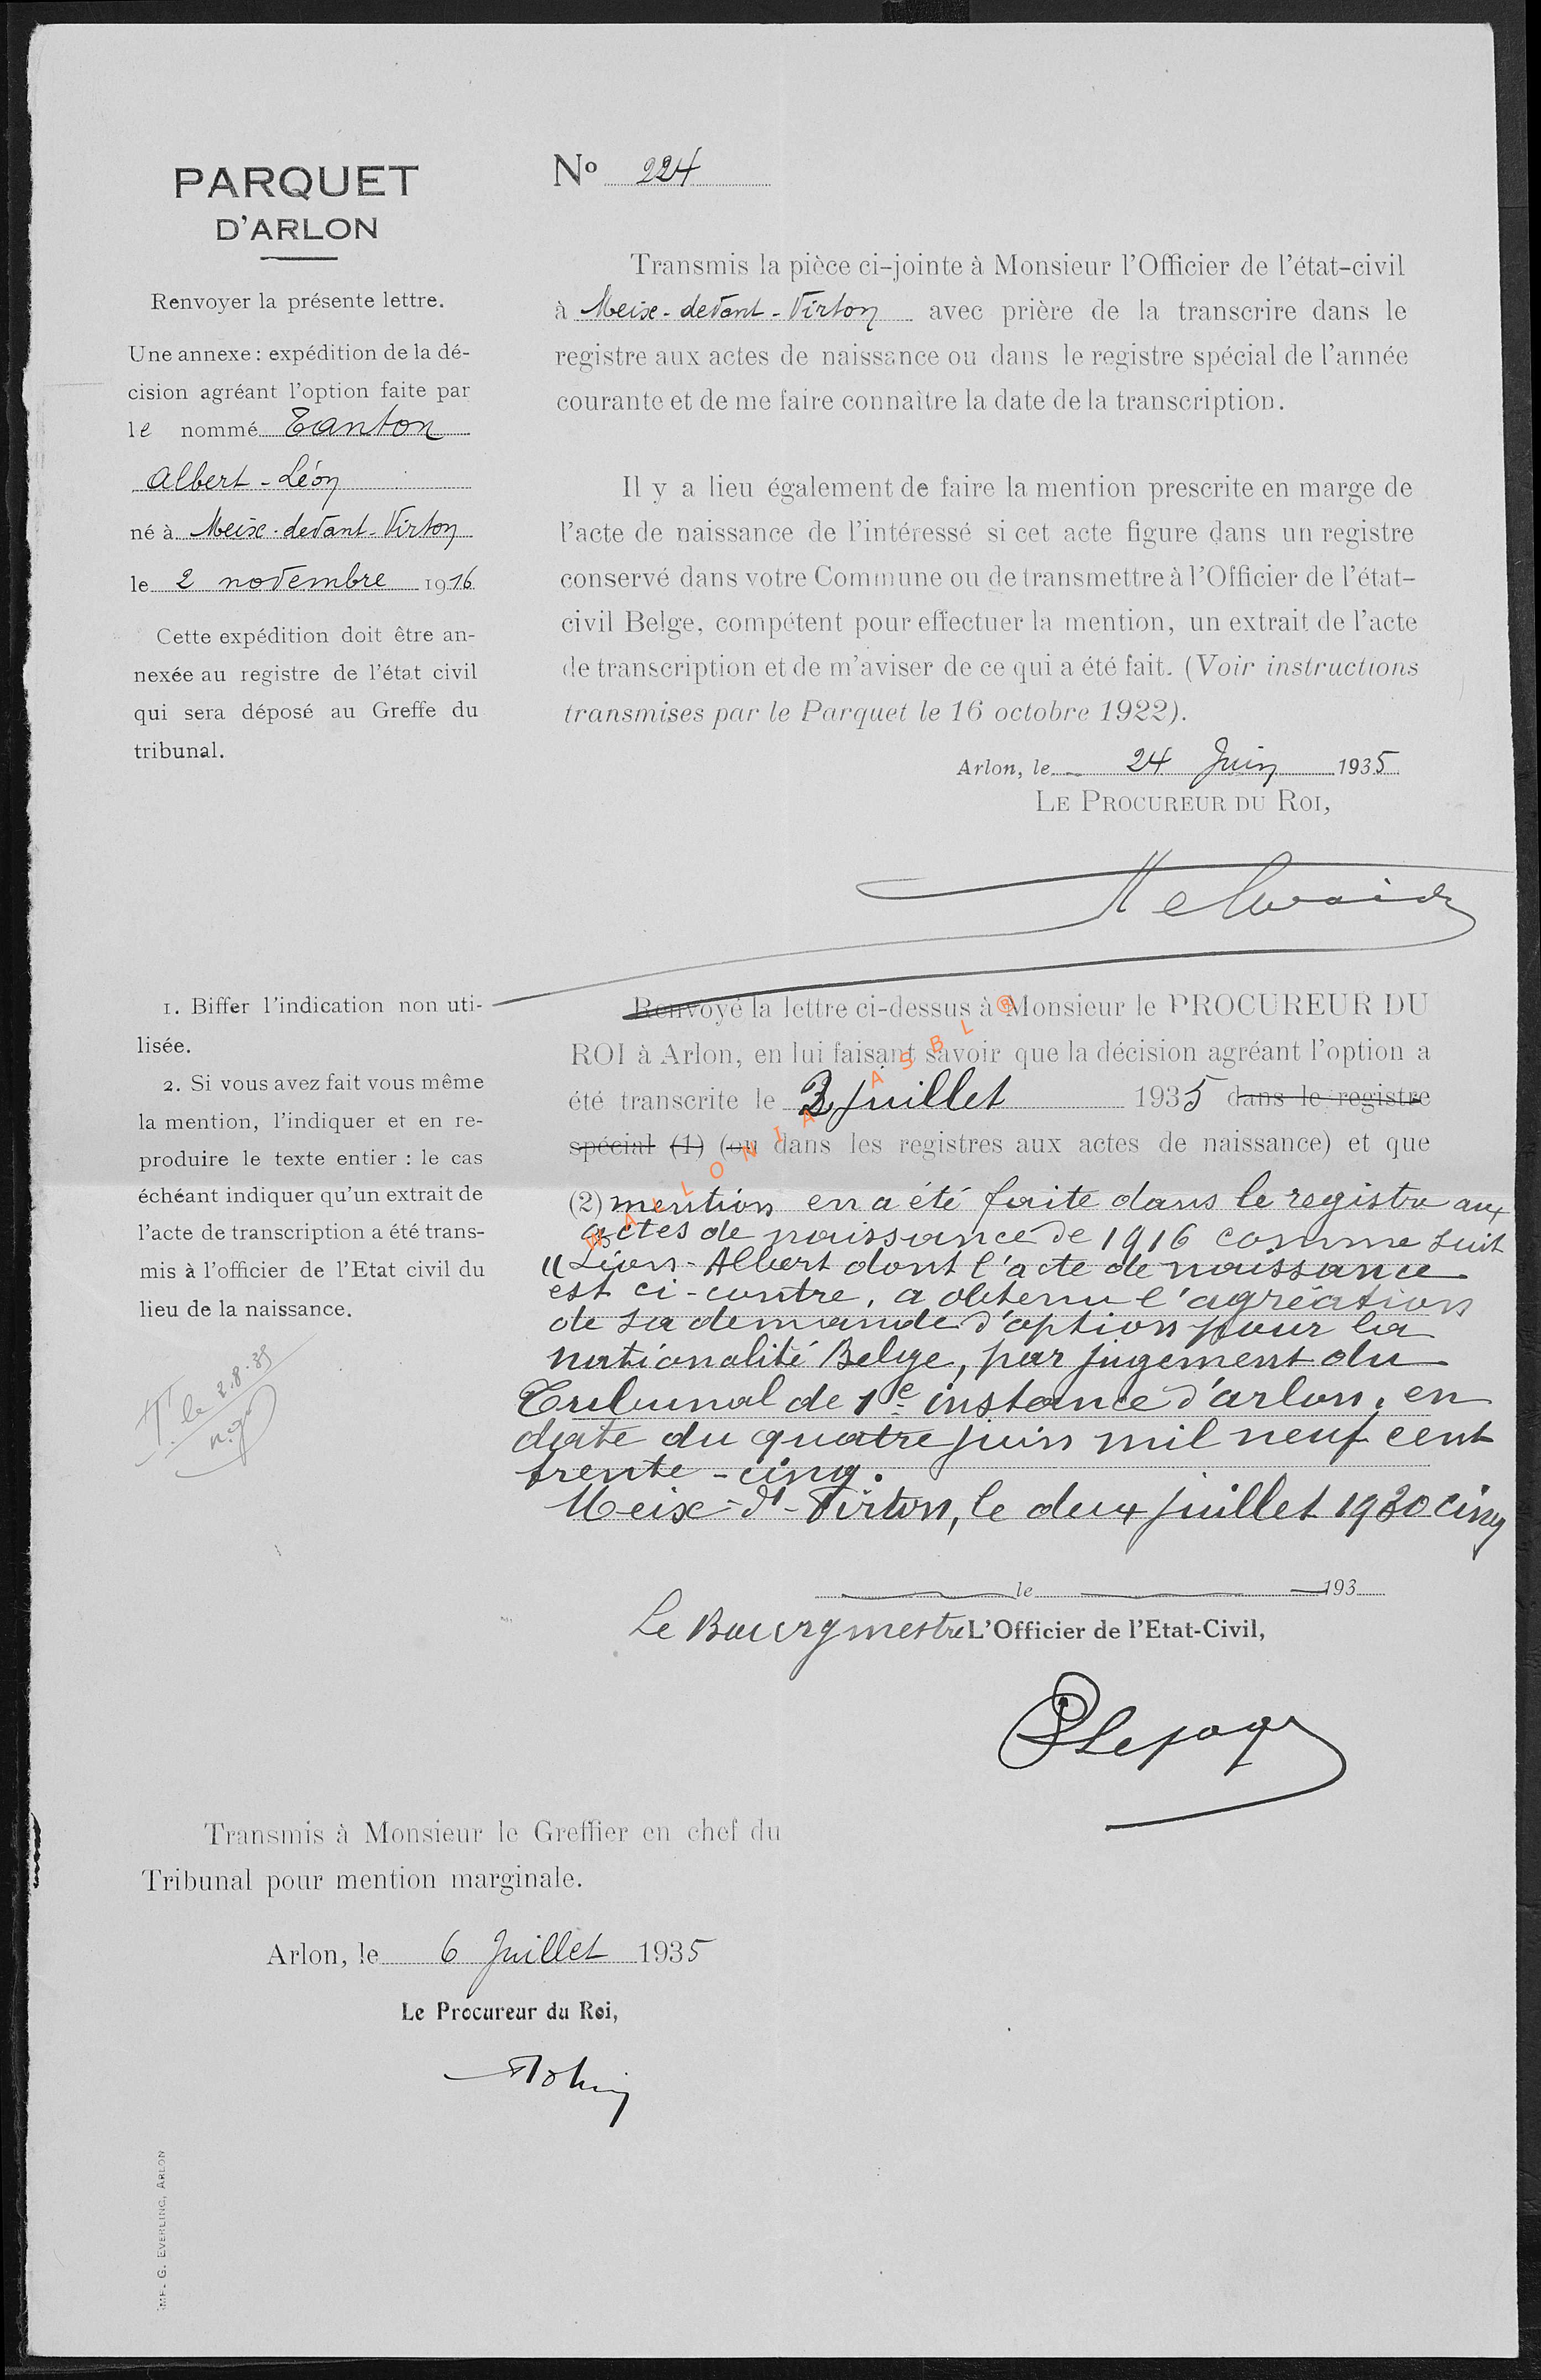 PARQUET
D'ARLON
Renvoyer la présente lettre.
Une annexe : expédition de la dé-
cision agréant l'option faite par
le nommé Tanton
Albert - Léon
né à Meix-devant-Virton
le 2 novembre 1916
Cette expédition doit être an-
nexée au registre de l'état civil
qui sera déposé au Greffe du
tribunal.
No 224
Transmis la pièce ci-jointe à Monsieur l'Officier de l'état-civil
à Meix-devant-Virton avec prière de la transcrire dans le
registre aux actes de naissance ou dans le registre spécial de l'année
courante et de me faire connaître la date de la transcription.
Il y a lieu également de faire la mention prescrite en marge de
l'acte de naissance de l'intéressé si cet acte figure dans un registre
conservé dans votre Commune ou de transmettre à l'Officier de l'état-
civil Belge, compétent pour effectuer la mention, un extrait de l'acte
de transcription et de m'aviser de ce qui a été fait. (Voir instructions
transmises par le Parquet le 16 octobre 1922).
Arlon, le 24 Juin 1935
LE PROCUREUR DU ROI,
1. Biffer l'indication non uti-
lisée.
2. Si vous avez fait vous même
la mention, l'indiquer et en re-
produire le texte entier : le cas
échéant indiquer qu'un extrait de
l'acte de transcription a été trans-
mis à l'officier de l'Etat civil du
lieu de la naissance.
T. le 2.8.35
Renvoyé la lettre ci-dessus à Monsieur le PROCUREUR DU
ROI à Arlon, en lui faisant savoir que la décision agréant l'option a
été transcrite le 2 juillet 1935 dans le registre
spécial (1) (ou dans les registres aux actes de naissance) et que
(2) mention en a été faite dans le registre aux
actes de naissance de 1916 comme suit
"Léon-Albert dont l'acte de naissance
est ci-contre, a obtenu l'agréation
de sa demande d'option pour la
nationalité Belge, par jugement du
Tribunal de 1e instance d'arlon, en
date du quatre juin mil neuf cent
trente-cinq.
Meix-dt-Virton, le deux juillet 1930 cinq
le 193
Le Bourgmestre L'Officier de l'Etat-Civil,
Lepage
WALLONIA ASBL ®
Transmis à Monsieur le Greffier en chef du
Tribunal pour mention marginale.
Arlon, le 6 Juillet 1935
Le Procureur du Roi,
IMP. G. EVERLING, ARLON